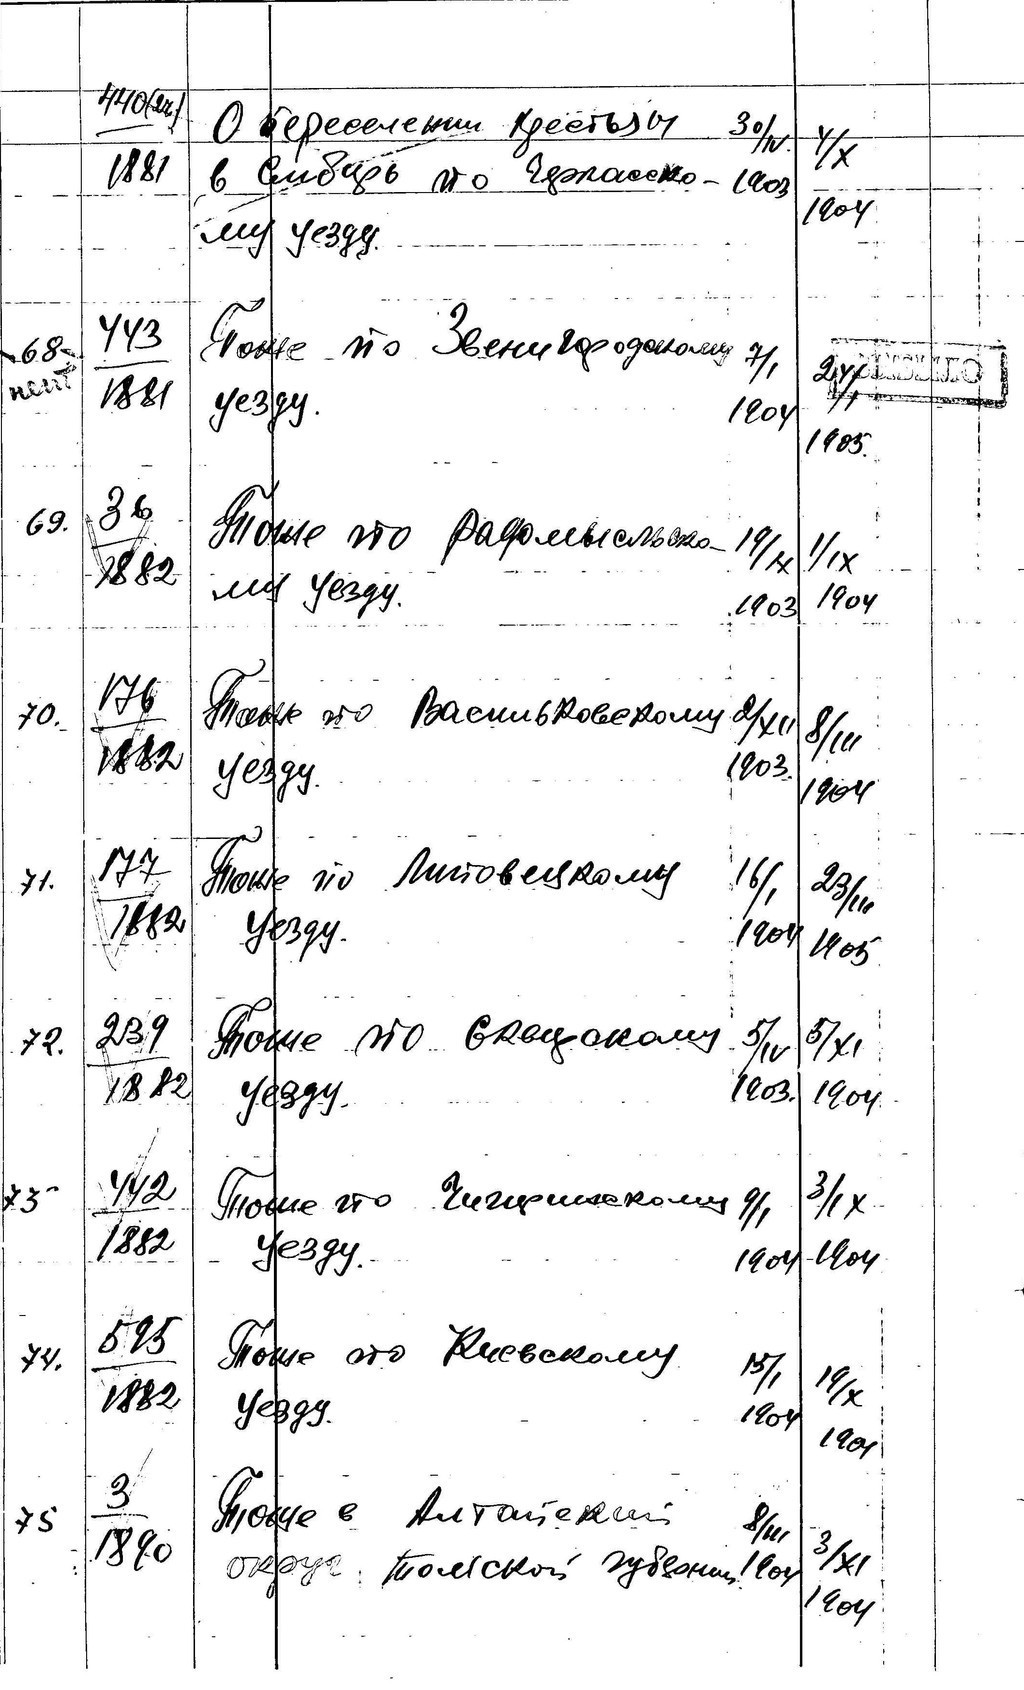 440(2т.)
1881
О переселении крестьян
в Сибирь по Черкасско-
му уезду.
30/IV
1903
4/X
1904
68
443
1881
Тоже по Звенигородскому
уезду.
7/I
1904
1905.
69.
36
1882
Тоже по Радомысльско-
му уезду.
19/IX
1903
1/IX
1904
70.
176
1882
Тоже по Васильковскому
уезду.
2/XII
1903.
8/III
1904
71.
177
1882
Тоже по Липовецкому
уезду.
16/I
1904
23/III
1905
72.
239
1882
Тоже по Сквирскому
уезду.
5/IV
1903.
5/XI
1904
73
442
1882
Тоже по Чигиринскому
уезду.
9/I
1904
3/IX
1904
74.
595
1882
Тоже по Киевскому
уезду.
15/I
1904
19/X
1904
75
3
1890
Тоже в Алтайский
округ Томской губернии
8/III
1904
3/XI
1904